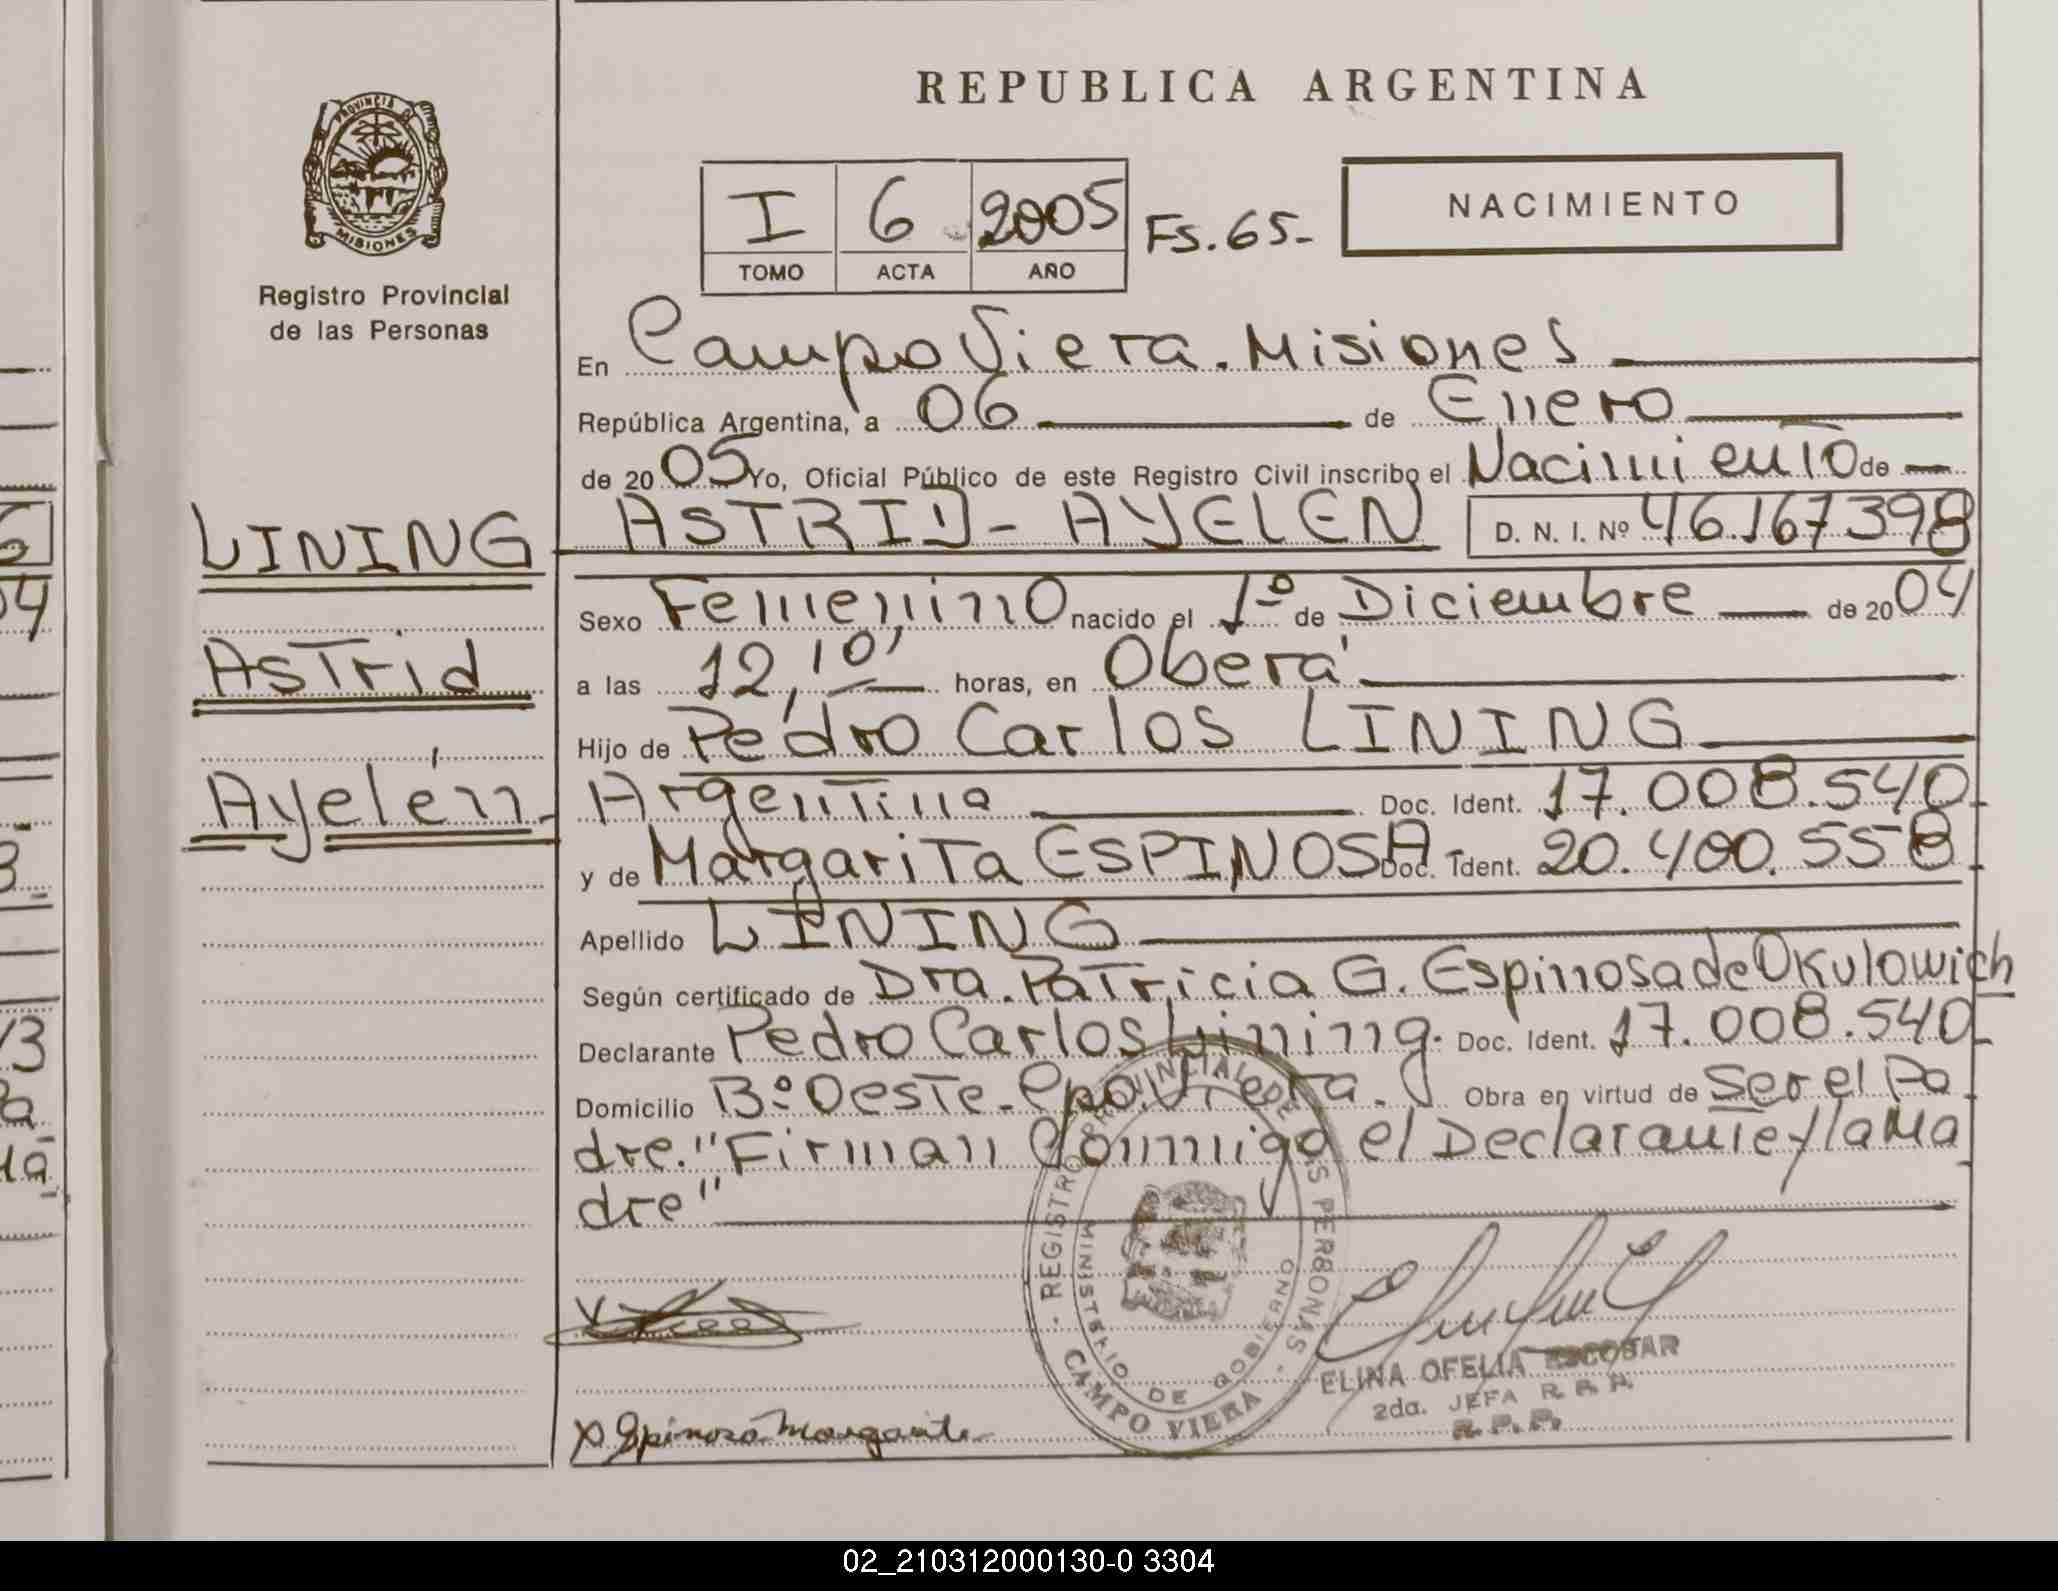 REPUBLICA ARGENTINA
PROVINCIA
MISIONES
Registro Provincial
de las Personas
I 6 2005 Fs. 65-
TOMO ACTA AÑO
NACIMIENTO
En Campo Viera. Misiones
República Argentina, a 06 de Enero
de 2005 Yo, Oficial Público de este Registro Civil inscribo el Nacimiento de
LINING
ASTRID - AYELEN D. N. I. Nº 46.167398
Sexo Femenino nacido el 1º de Diciembre de 2004
Astrid
a las 12,10' horas, en Oberá
Hijo de Pedro Carlos LINING
Ayelén-
Argentina Doc. Ident. 17.008.540-
y de Margarita ESPINOSA Doc. Ident. 20.400.558-
Apellido LINING
Según certificado de Dra. Patricia G. Espinosa de Okulowich
Declarante Pedro Carlos Lining. Doc. Ident. 17.008.540-
Domicilio Bº Oeste- Cpo. Viera. Obra en virtud de Ser el Pa
dre. "Firman Conmigo el Declarante y la Ma
dre"
REGISTRO PROVINCIAL DE LAS PERSONAS
MINISTERIO DE GOBIERNO
CAMPO VIERA
ELINA OFELIA ESCOBAR
2da. JEFA
R.P.P.
X Espinosa Margarita
02_210312000130-0 3304